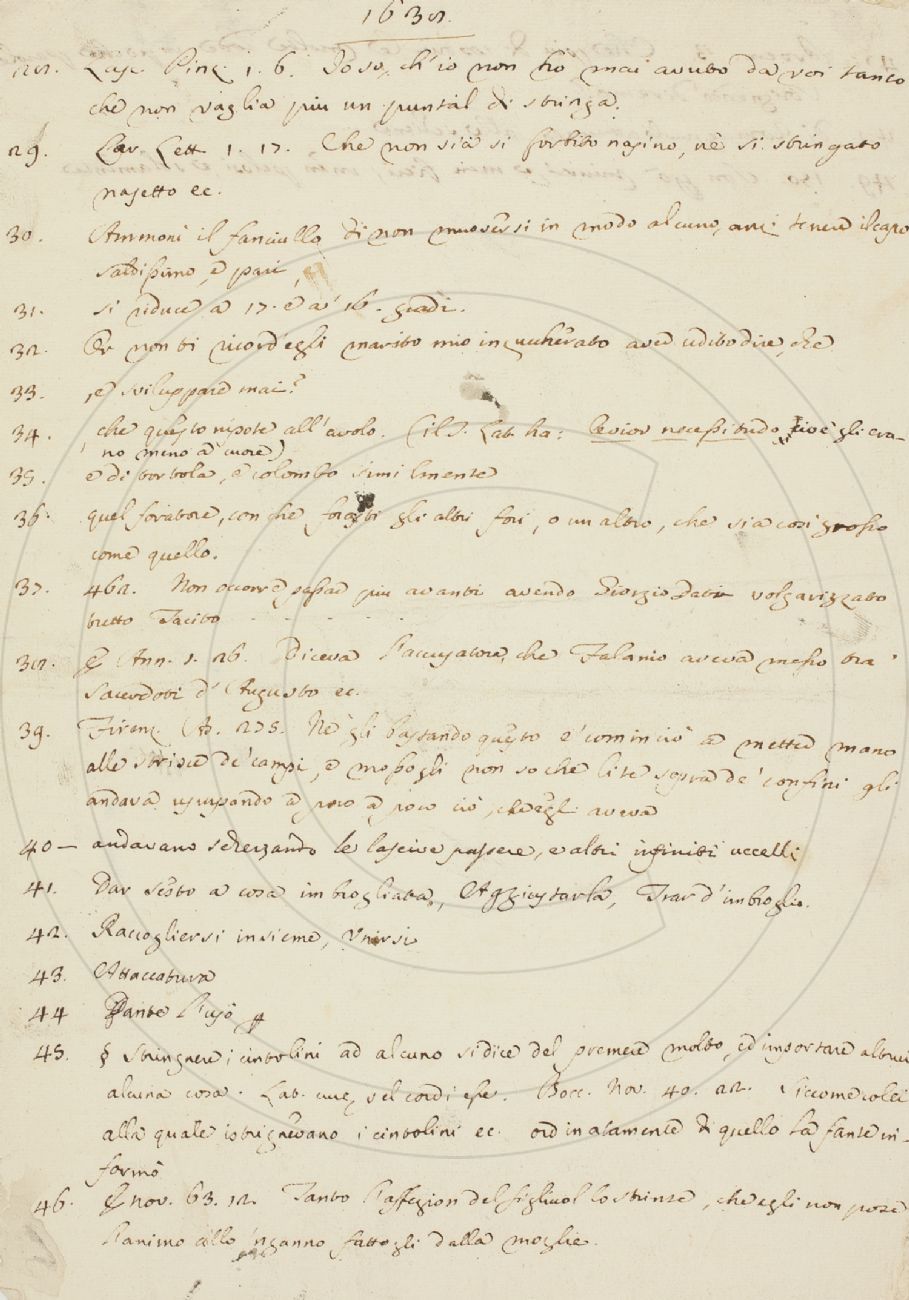 1638.
28. Lasc. Pinz. 1. 6. Io so, ch'io non ho mai avuto da voi tanto
che non vaglia piu un puntal di stringa.
29. Car. Lett. 1. 17. Che non sia si sortito nasino, nè si stringato
nasetto ec.
30. Ammonì il fanciullo di non muoversi in modo alcuno, anzi tenere il capo
saldissimo, e pari
31. si riduce a 17. e a' 16. gradi.
32. Or non ti ricord'egli marito mio inzuccherato aver udito dire, che
33. , e sviluppare mai?
34. , che questo nipote all'avolo. (il T. Lat. ha: levior necessitudo, cioè gli era-
no meno a cuore)
35. e di tortola, e colombo similmente
36. quel foratore, con che forasti gli altri fori, o un altro, che sia così grosso
come quello.
37. 462. Non occorre passar piu avanti avendo Giorgio Dati volgarizzato
tutto Tacito . . . . .
38. E Ann. 1. 26. Diceva l'accusatore, che Falanio aveva messo tra'
Sacerdoti d'Augusto ec.
39. Firenz. As. 275. Nè gli bastando questo e' cominciò a metter mano
alle strisce de' campi, e mossogli non so che lite sopra de' confini gli
andava usurpando a poco a poco ciò, che egli aveva
40- andavano scherzando le lascive passere, e altri infiniti uccelli
41. Dar sesto a cosa imbrogliata, Aggiustarla, Trar d'imbroglio.
42. Raccogliersi insieme, Unirsi
43. Attaccatura
44 Dante l'usò
45. § Strignere i cintolini ad alcuno si dice del premere molto, ed importare altrui
alcuna cosa. Lat. curæ, vel cordi esse. Bocc. Nov. 40. 22. Siccome colei
alla quale istrignevano i cintolini ec. ordinatamente di quello la fante in-
formò
46. E nov. 63. 12. Tanto l'affezion del figliuol lo strinse, che egli non pose
l'animo allo 'nganno fattogli dalla moglie.